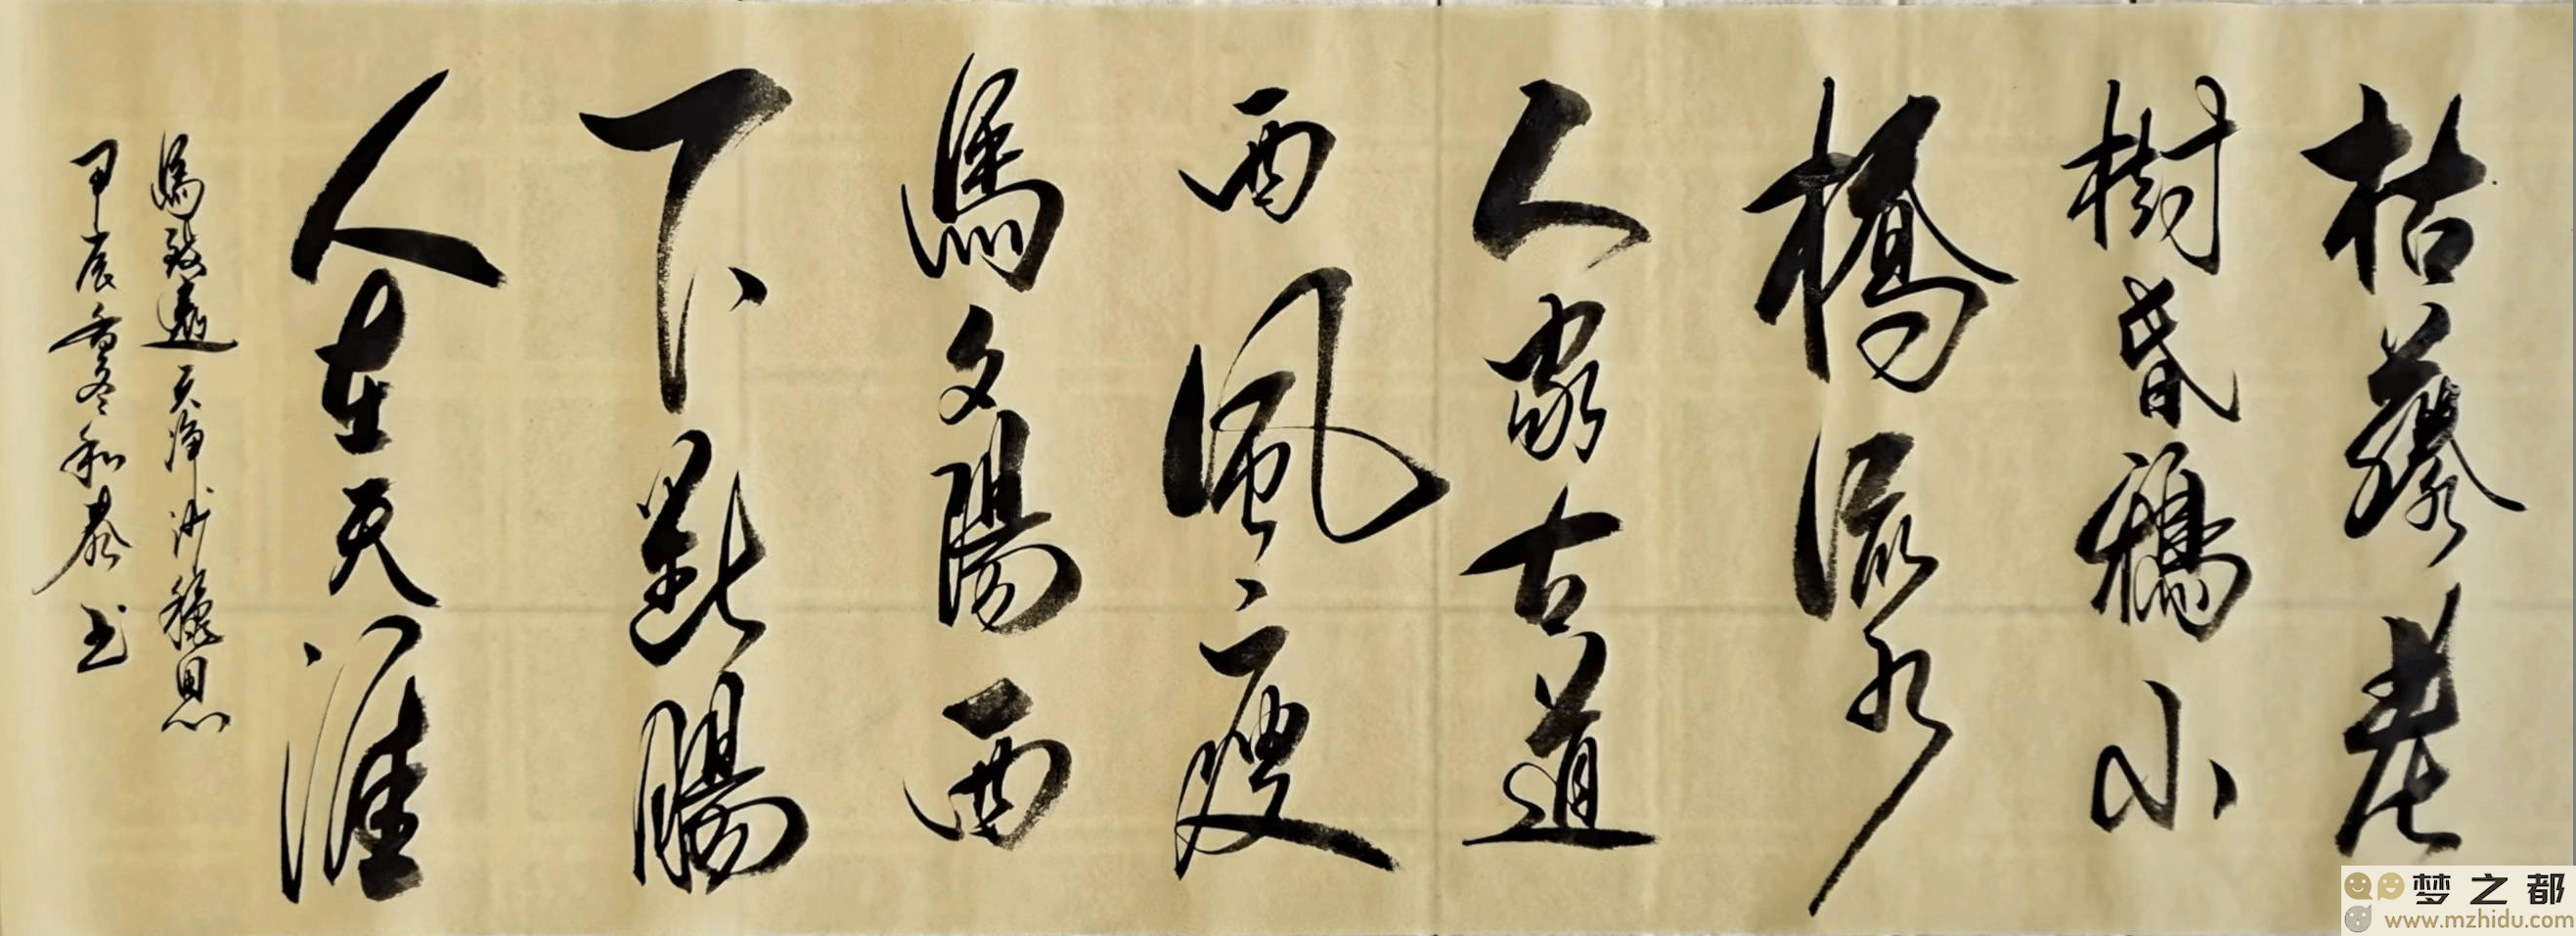 枯藤老
樹昏鴉小
橋流水
人家古道
西風瘦
馬夕陽西
下斷腸
人在天涯
馬致遠天淨沙穐思
甲辰季冬和泰书
梦之都
www.mzhidu.com